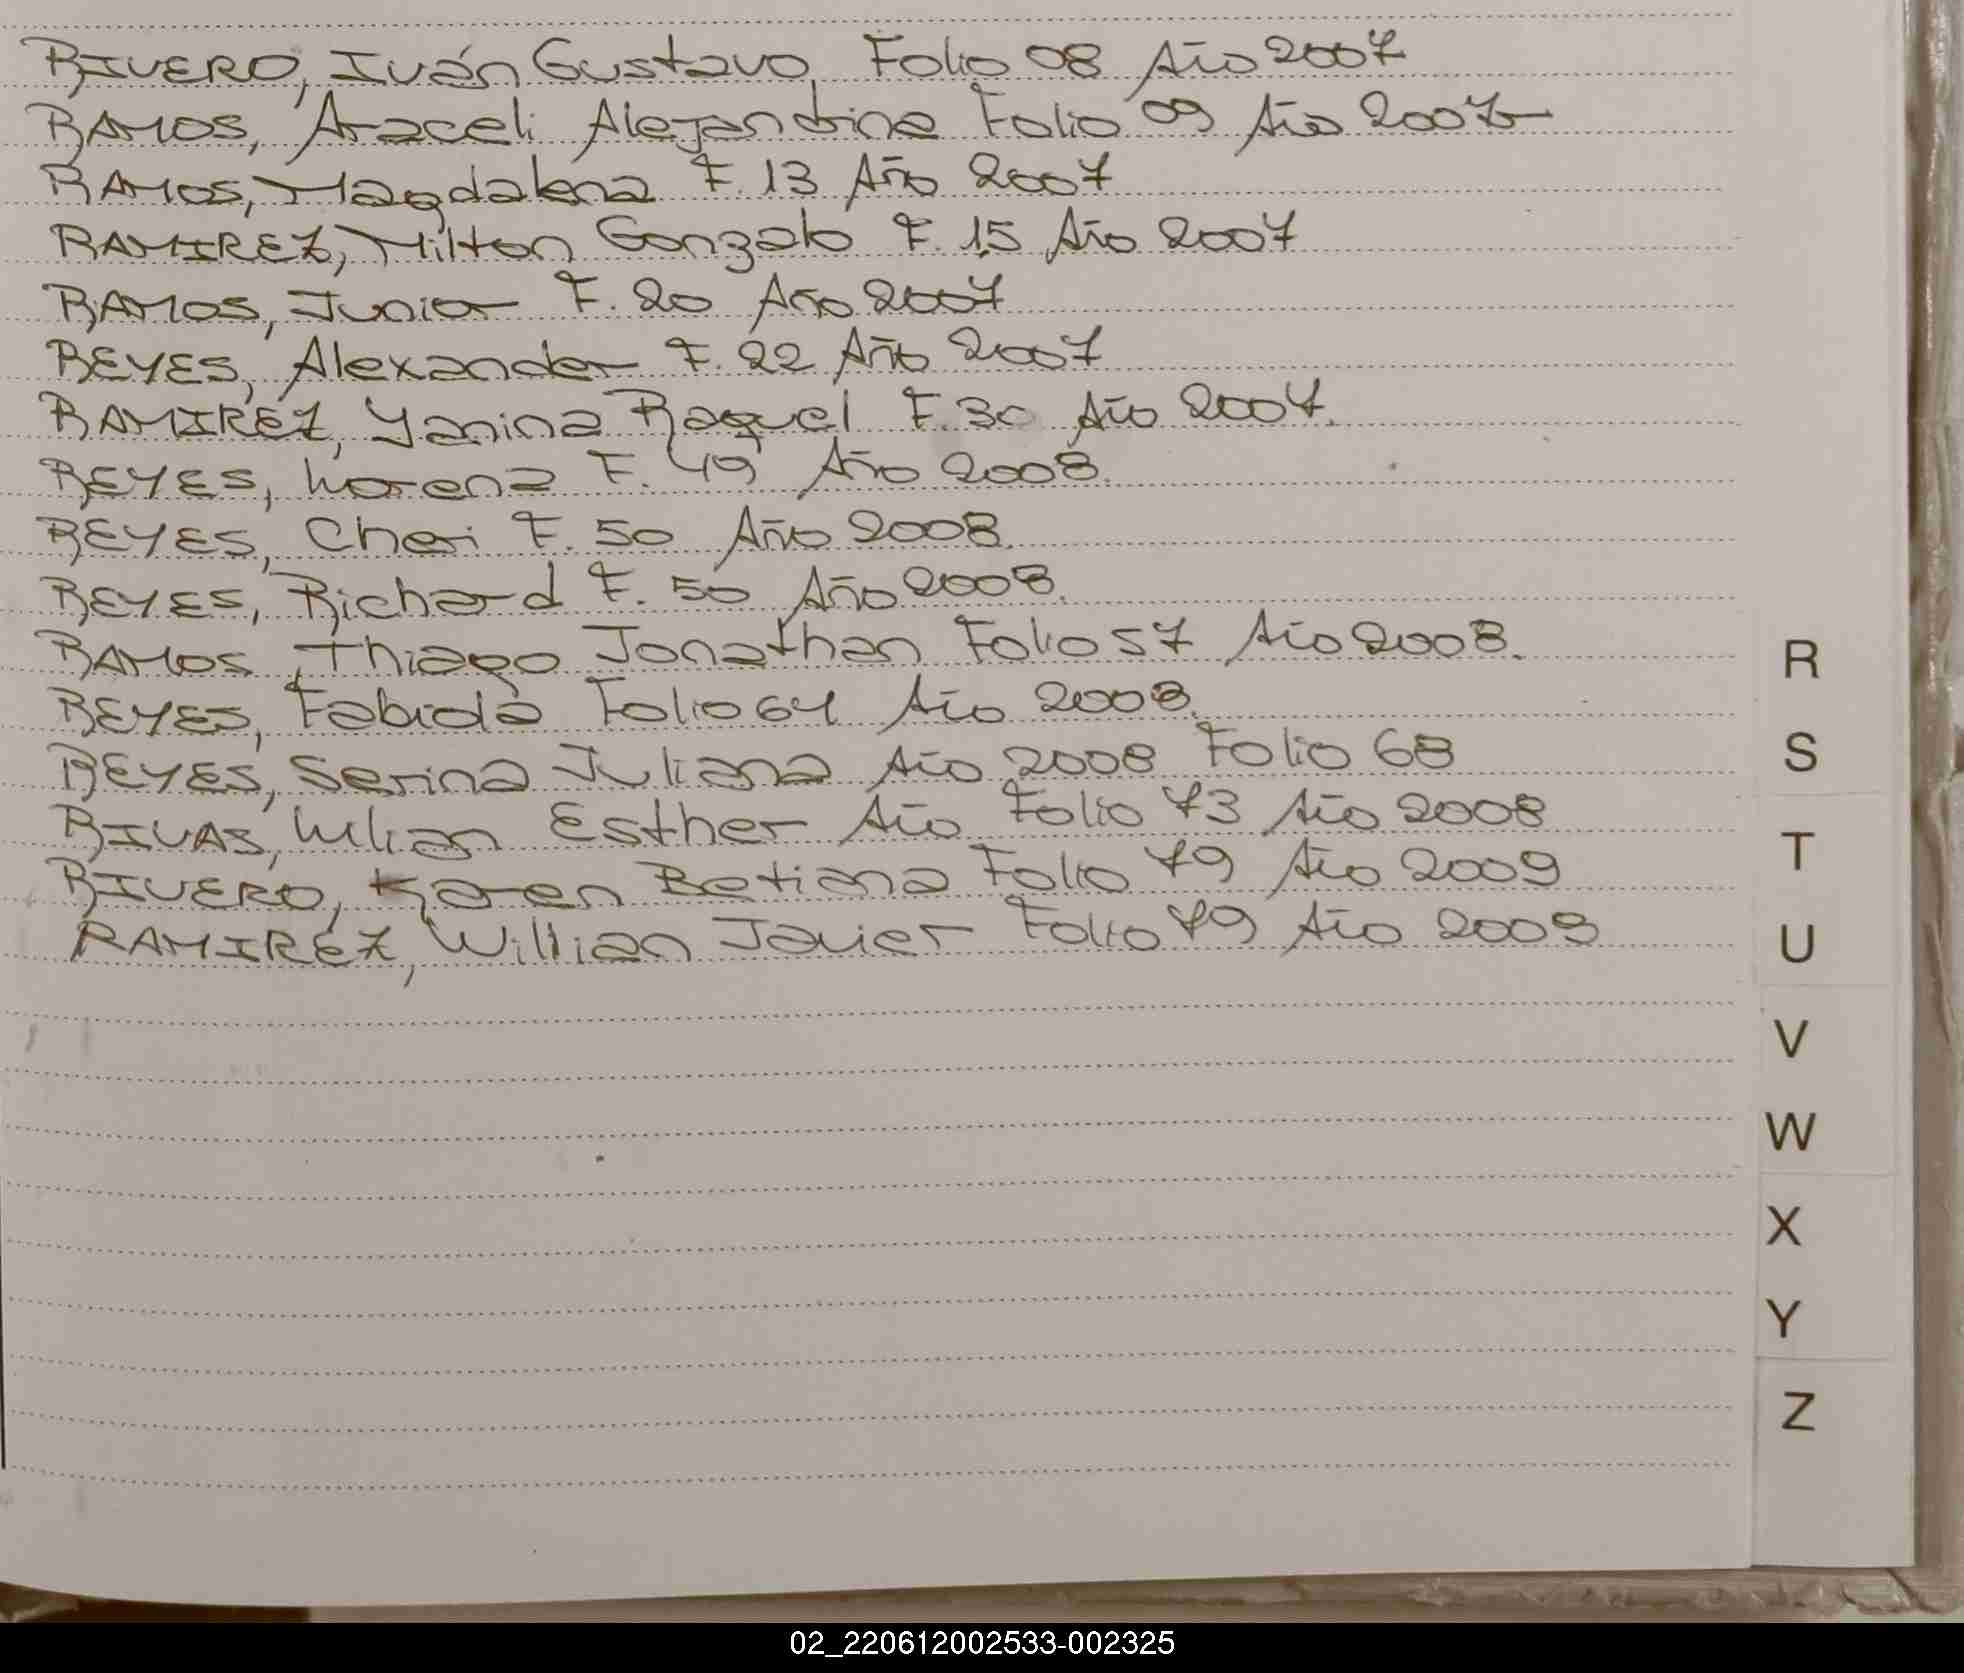 RIVERO, Iván Gustavo Folio 08 Año 2007
RAMOS, Araceli Alejandrina Folio 09 Año 2007
RAMOS, Magdalena F. 13 Año 2007
RAMIREZ, Milton Gonzalo F. 15 Año 2007
RAMOS, Junior F. 20 Año 2007
REYES, Alexander F. 22 Año 2007
RAMIREZ, Yanina Raquel F. 30 Año 2007.
REYES, Lorena F. 49 Año 2008.
REYES, Cheri F. 50 Año 2008.
REYES, Richard F. 50 Año 2008.
RAMOS, Thiago Jonathan Folio 57 Año 2008.
REYES, Fabiola Folio 64 Año 2008.
REYES, Serina Juliana Año 2008 Folio 68
RIVAS, Lilian Esther Año Folio 73 Año 2008
RIVERO, Karen Betiana Folio 79 Año 2009
RAMIREZ, Willian Javier Folio 79 Año 2009
R
S
T
U
V
W
X
Y
Z
02_220612002533-002325